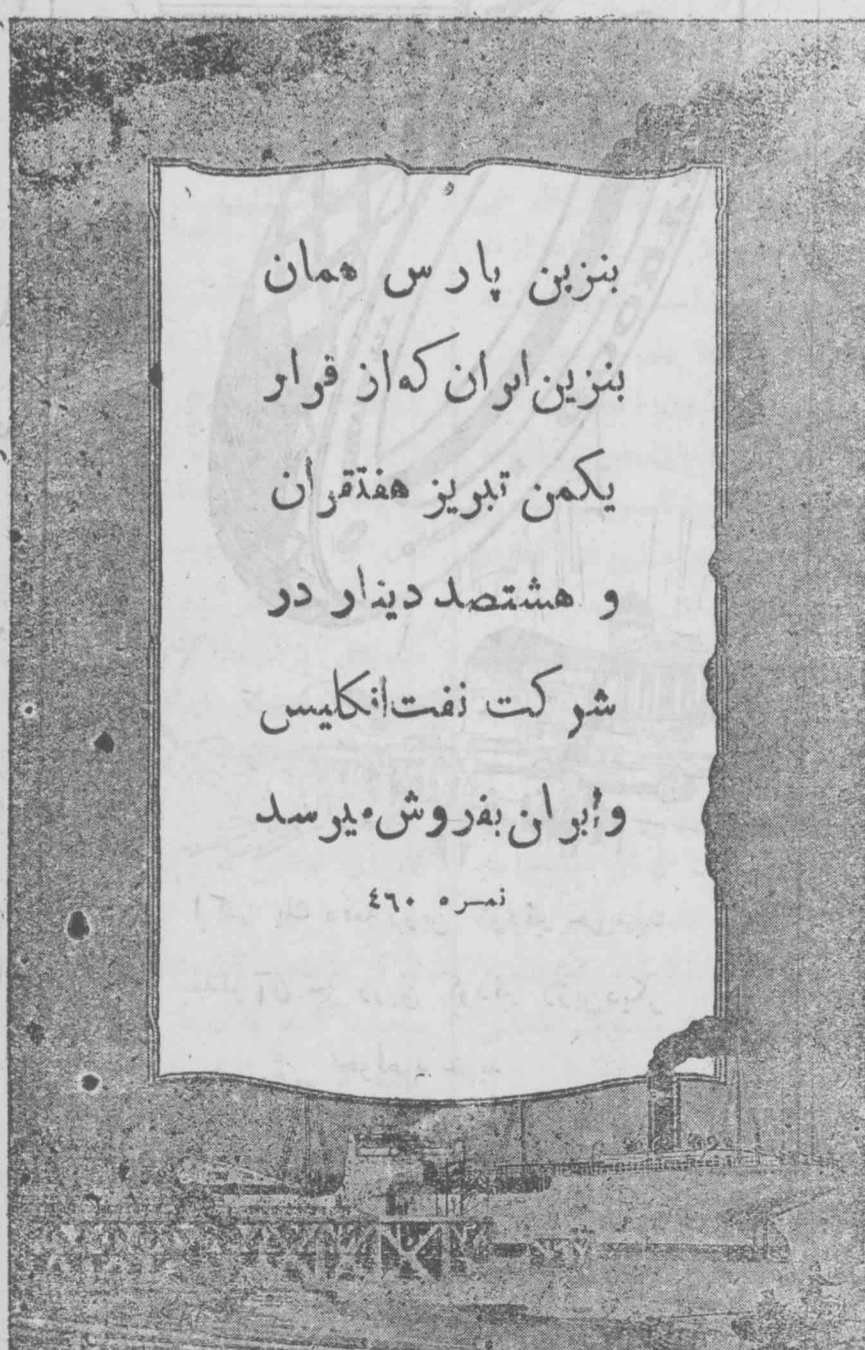 بنزین پارس همان
بنزین ایران که از قرار
یکمن تبریز هفتقران
و هشتصد دینار در
شرکت نفت انکلیس
و ایران بفروش میرسد
نمره ٤٦٠